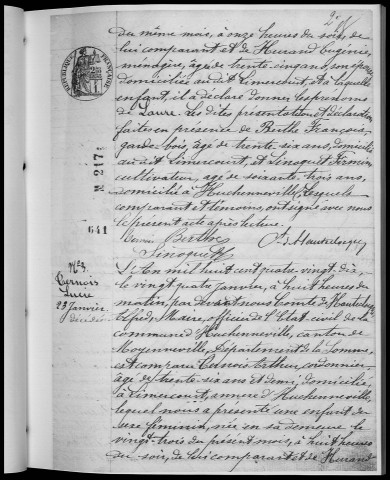 2e
du même mois, à onze heures du soir, de
lui comparant et de Heurand Eugénie,
ménagère, âgée de trente-cinq ans son épouse
domiciliée audit Limercourt, et à laquelle
enfant, il a déclaré donner les prénoms
de Laure. Les dites présentation et déclaration
faites en présence de Berthe François,
garde bois, âgé de trente six ans, domicilié
audit Limercourt, et Sinoquet Firmin
cultivateur, âgé de soixante-trois ans,
domicilié à Huchenneville, lesquels
comparant et témoins, ont signé avec nous
le présent acte après lecture.
Berthe
Sinoquet
RÉPUBLIQUE FRANÇAISE
N 217
641
No 3
Lucie
23 Janvier
L'An mil huit cent quatre-vingt-dix,
le vingt quatre janvier, à huit heures du
matin, par devant nous Comte de Hauteclocque
Maire, officier de l'Etat civil de la
commune d'Huchenneville, canton de
Moyenneville, Département de la Somme,
est comparu Arthur, cordonnier,
âgé de trente-six ans et demi, domicilié
à Limercourt, annexe d'Huchenneville,
lequel nous a présenté une enfant du
sexe féminin, née en sa demeure le
vingt-trois du présent mois, à huit heures
du soir, de lui comparant et de Heurand